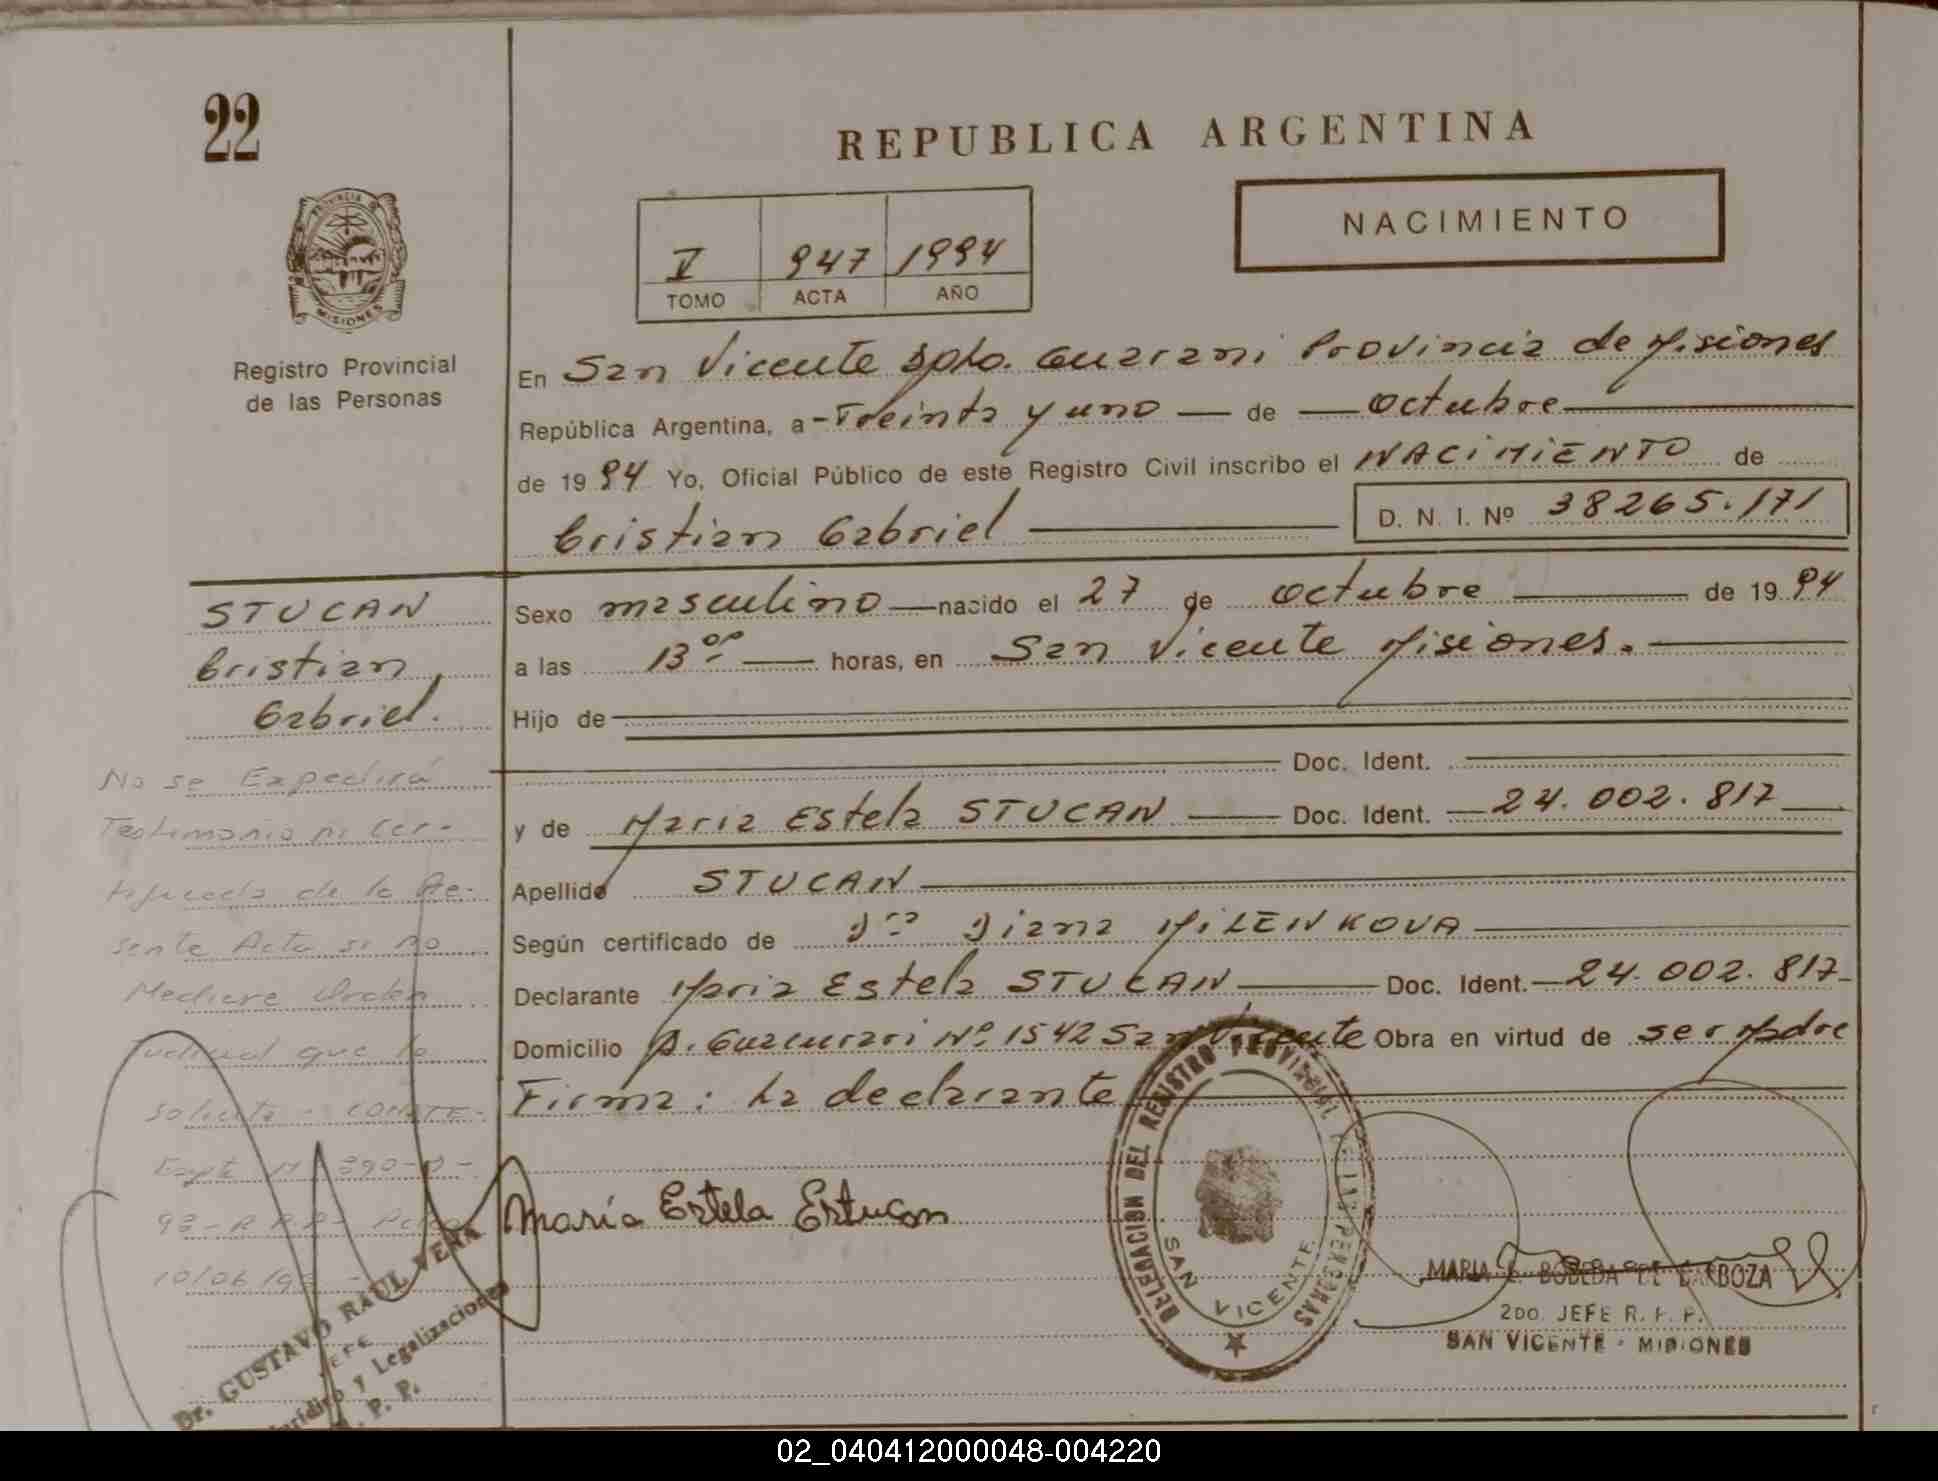 22
REPUBLICA ARGENTINA
NACIMIENTO
V 947 1994
TOMO ACTA AÑO
PROVINCIA DE
MISIONES
Registro Provincial
de las Personas
En San Vicente Dpto. Guarani Provincia de Misiones
República Argentina, a - Treinta y uno — de — octubre —
de 1994 Yo, Oficial Público de este Registro Civil inscribo el NACIMIENTO de
Cristian Gabriel — D. N. I. Nº 38265.171
STUCAN
Cristian
Gabriel.
Sexo masculino — nacido el 27 de octubre — de 1994
a las 13 — horas, en San Vicente Misiones. —
Hijo de —
— Doc. Ident. —
y de Maria Estela STUCAN — Doc. Ident. — 24.002.817 —
Apellido STUCAN —
Según certificado de Dra Diana MILENKOVA —
Declarante Maria Estela STUCAN — Doc. Ident. — 24.002.817 -
Domicilio A. Guacurari Nº 1542 San Vicente Obra en virtud de ser Madre
Firma: La declarante —
No se Expedirá
Testimonio ni Cer-
tificado de la Pre-
sente Acta si no
Mediare Orden
Judicial que lo
solicite - CONSTE -
Expte Nº 390-
10/06/98
Dr. GUSTAVO RAUL VERA
JEFE
Jurídico y Legalizaciones
R. P. P.
María Estela Estucan
DELEGACION DEL REGISTRO PROVINCIAL DE LAS PERSONAS
SAN VICENTE
MARIA BOBEDA DE BARBOZA
2DO. JEFE R. P. P.
SAN VICENTE - MISIONES
02_040412000048-004220